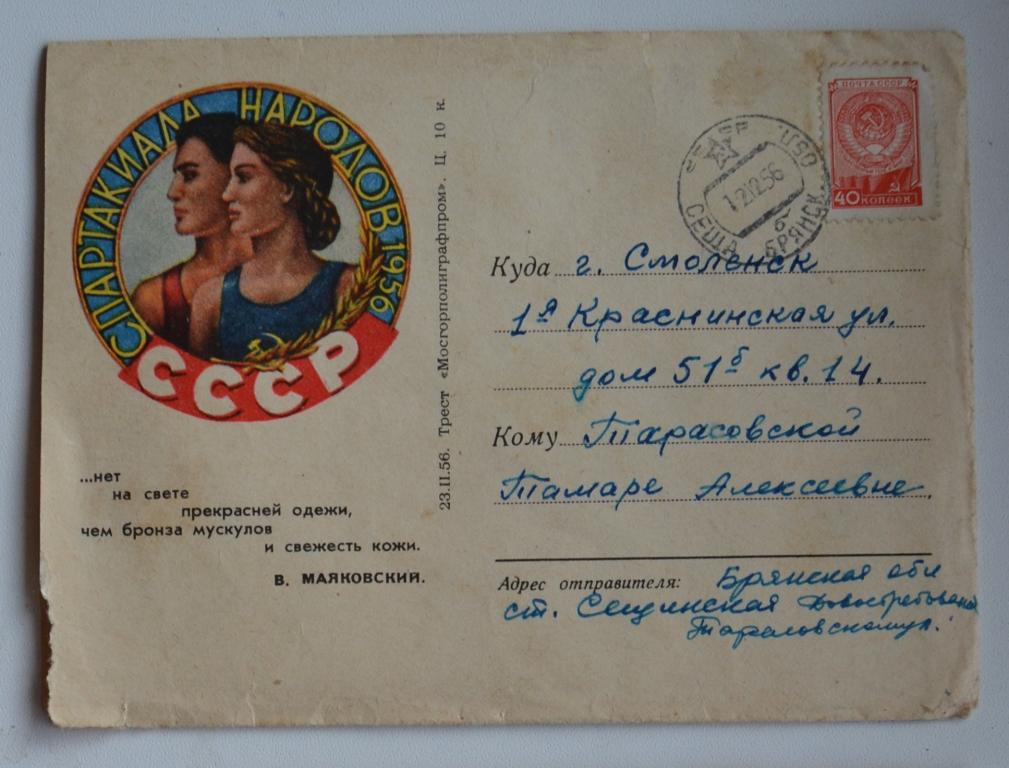 СПАРТАКИАДА НАРОДОВ 1956
СССР
...нет
на свете
прекрасней одежи,
чем бронза мускулов
и свежесть кожи.
В. МАЯКОВСКИЙ.
23.II.56. Трест «Мосгорполиграфпром». Ц. 10 к.
ПОЧТА СССР
40 КОПЕЕК
СССР
121256
СЕЩА БРЯНСК
б
Куда г. Смоленск
1я Краснинская ул.
дом 51б кв. 14.
Кому Тарасовской
Тамаре Алексеевне.
Адрес отправителя: Брянская обл
ст. Сещинская Довостребования